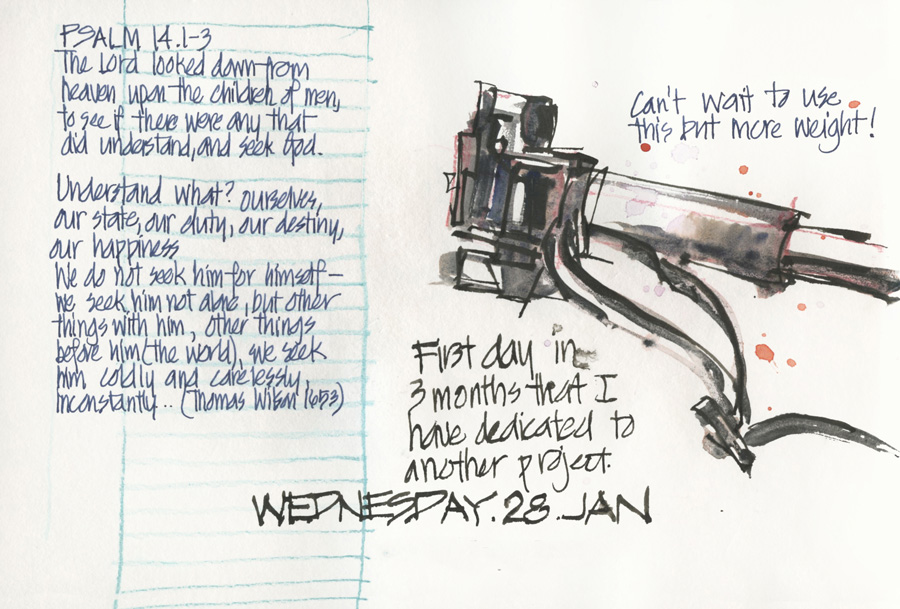 PSALM 14.1-3
The Lord looked down from
heaven upon the children of men,
to see if there were any that
did understand, and seek God.
Understand what? ourselves,
our state, our duty, our destiny,
our happiness
We do not seek him for himself—
we seek him not alone, but other
things with him, other things
before him (the world), we seek
him coldly and carelessly,
inconstantly... (Thomas Wilson 1653)
Can't wait to use
this but more weight!
First day in
3 months that I
have dedicated to
another project.
WEDNESDAY.28.JAN